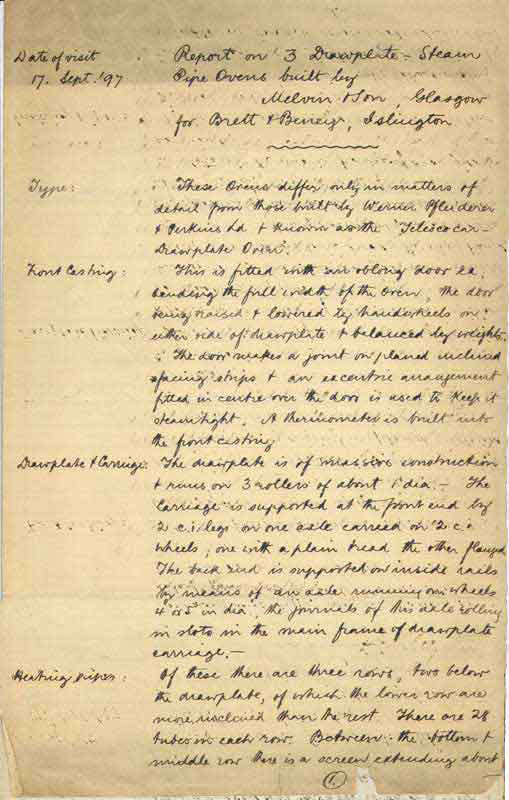 Date of visit
17. Sept. '97
Report on 3 Drawplate - Steam
Pipe Ovens built by
Melvin & Son, Glasgow
for Brett & Beney, Islington
Type:
These Ovens differ only in matters of
detail from those built by Werner Pfleiderer
& Perkins Ld & known as the Telescocar-
Drawplate Oven.
Front Casting:
This is fitted with an oblong door ex-
tending the full width of the Oven, the door
being raised & lowered by handwheels on
either side of drawplate & balanced by weights.
The door makes a joint on planed inclined
facing strips & an excentric arrangement
fitted in centre over the door is used to keep it
steamtight. A thermometer is built into
the front casting
Drawplate & Carriage:
The drawplate is of massive construction
& runs on 3 rollers of about 1' dia. - The
Carriage is supported at the front end by
2 c.i. legs on one axle carried on 2 c.i.
wheels, one with a plain tread the other flanged
The back end is supported on inside rails
by means of an axle running on wheels
4" or 5" in dia the journals of this axle rolling
in slots in the main frame of drawplate
carriage. -
Heating pipes:
Of these there are three rows, two below
the drawplate, of which the lower row are
more inclined than the rest. There are 28
tubes in each row. Between the bottom &
middle row there is a screen extending about
1.